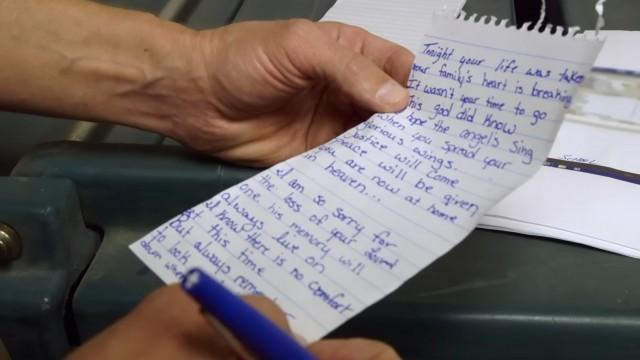 Tonight your life was taken
your family's heart is breaking
It wasn't your time to go
This god did know
hope the angels sing
when you spread your
glorious wings.
Justice will come
peace will be given
you are now at home
in heaven...
I am so sorry for
the loss of your loved
one his memory will
always live on
I know there is no comfort
at this time
but always remember
to look